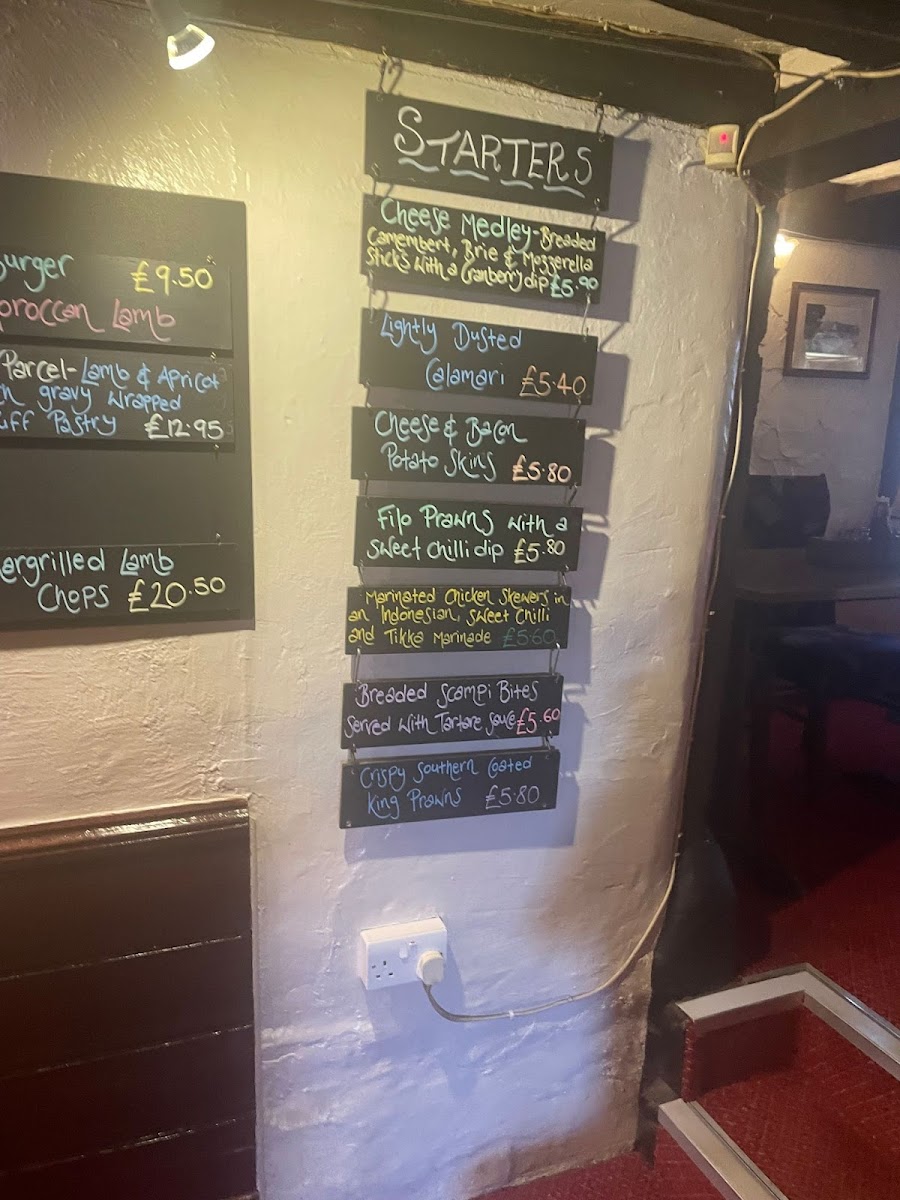 £9.50
Lamb
Parcel-Lamb & Apricot
gravy wrapped
Pastry £12.95
Lamb
Chops £20.50
STARTERS
Cheese Medley-Breaded
Camembert, Brie & Mozzerella
Sticks with a Cranberry dip £5.90
Lightly Dusted
Calamari £5.40
Cheese & Bacon
Potato Skins £5.80
Filo Prawns with a
sweet chilli dip £5.80
Marinated Chicken Skewers in
an Indonesian, Sweet Chilli
and Tikka Marinade £5.60
Breaded Scampi Bites
Served with Tartare Sauce £5.60
Crispy Southern Coated
King Prawns £5.80